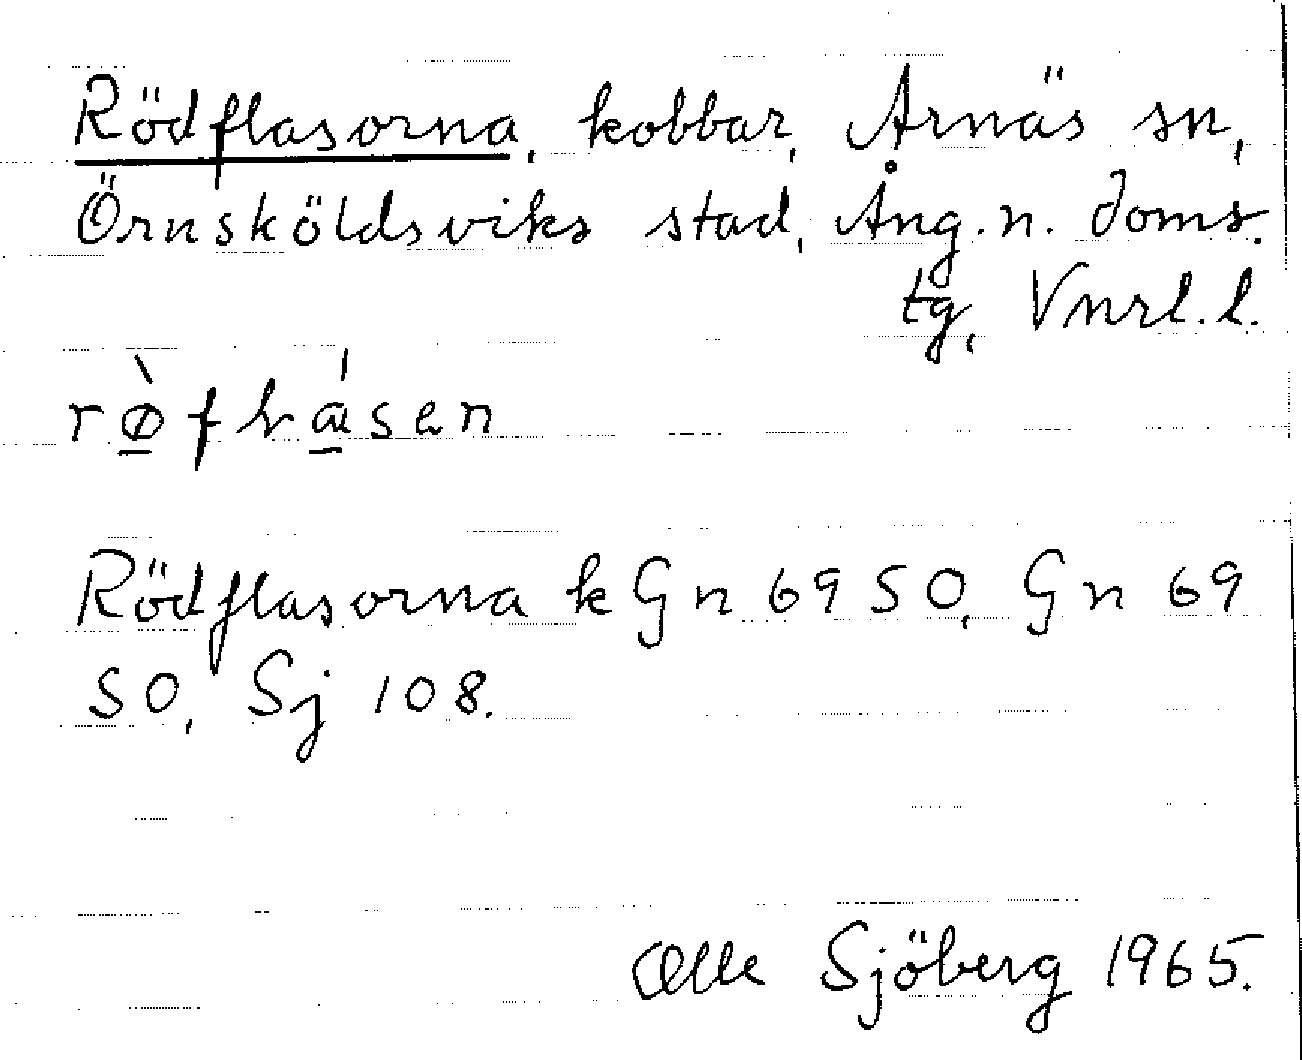 Rödflasorna, kobbar, Arnäs sn,
Örnsköldsviks stad, Ång. n. doms.
tg, Vnrl. l.
Rödflasorna k Gn 69 50, Gn 69
50, Sj 108.
Olle Sjöberg 1965.